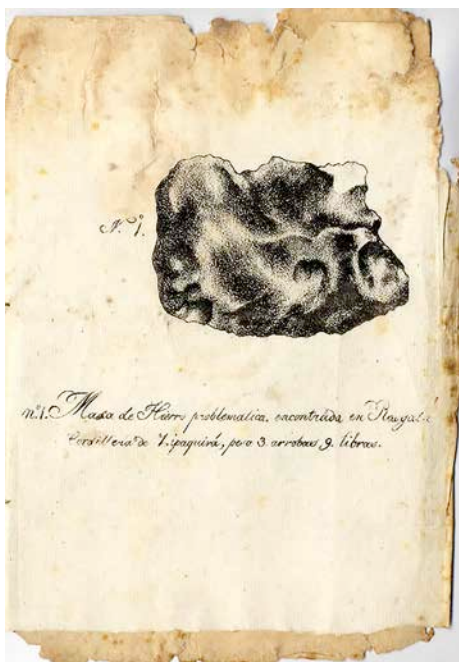 N.º 1.
nº1. Masa de Hierro problematica, encontrada en Rasgatá
Cordillera de Zipaquirá, peso 3 arrobas 9. libras.